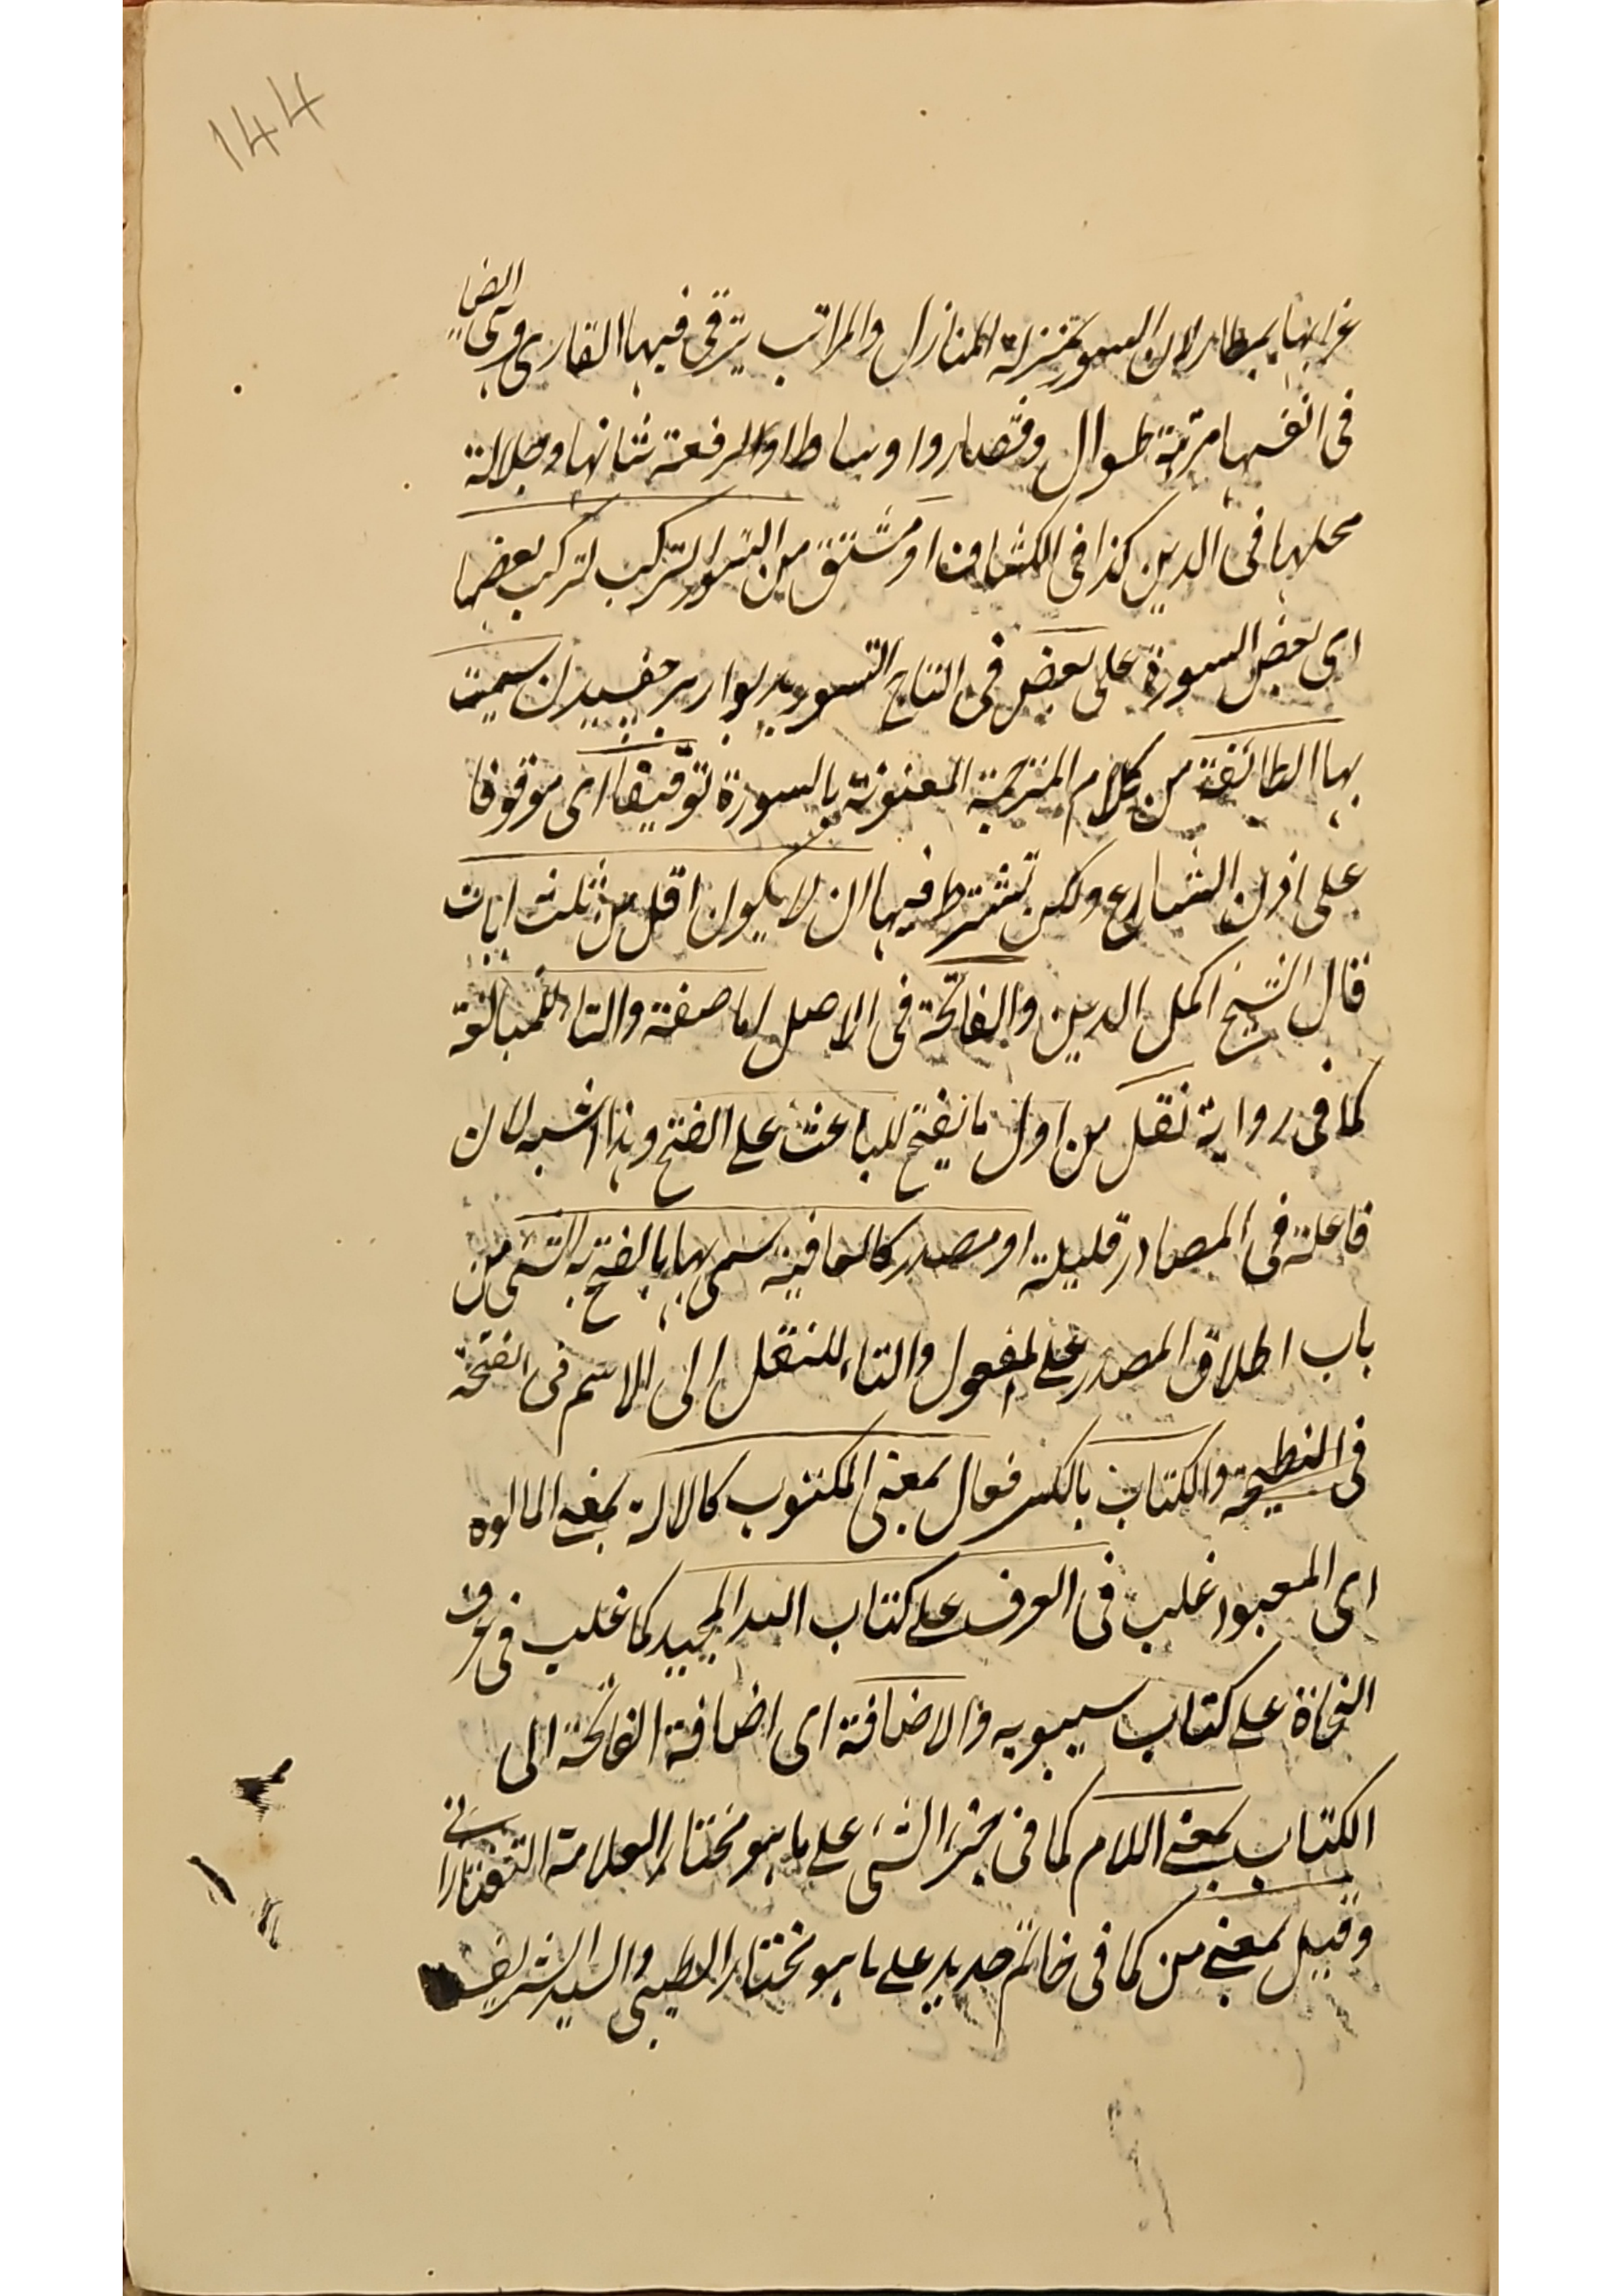 144
غرابها بمطار لان السور بمنزلة المنازل والمراتب يترقى فيها القارى وهى ايضا
فى انفسها مترتبة طوال وقصار واوساط او لرفعة شانها وجلالة
محلها فى الدين كذا فى الكشاف او مشتق من التسور التركب لتركب بعضها
اى بعض السورة على بعض فى التاج التسور بديوار بر جفسيدن سميت
بها الطائفة من كلام المترجمة المعنونة بالسورة توقيفا اى موقوفا
على اذن الشارع ولكن تشترط فيها ان لا يكون اقل من ثلث ايات
قال الشيخ اكمل الدين والفاتحة فى الاصل اما صفة والتاء للمبالغة
كما فى رواية نقل من اول ما تفتح للباعث على الفتح وهذا اشبه لان
فاعلة فى المصادر قليلة او مصدر كالعافية سمى بها بالفتح به الشىء من
باب اطلاق المصدر على المفعول والتاء للنقل الى الاسم فى الفتحة
فى النطيحة والكتاب بالكسر فعال بمعنى المكتوب كالاله بمعنى المالوه
اى المعبود غلب فى العرف على كتاب الله المجيد كما غلب فى عرف
النحاة على كتاب سيبويه والاضافة اى اضافة الفاتحة الى
الكتاب بمعنى اللام كما فى جزء الشىء على ما هو مختار العلامة التفتازانى
وقيل بمعنى من كما فى خاتم حديد على ما هو مختار الطيبى والسيد الشريف